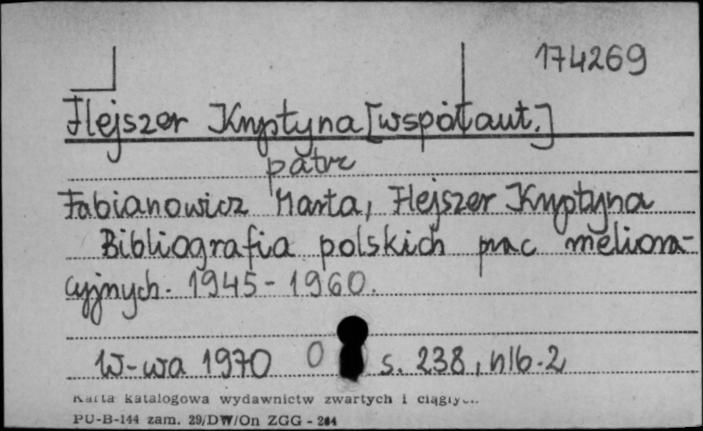 174269
Flejszer Krystyna [współaut.]
patrz
Fabianowicz Marta, Flejszer Krystyna
Bibliografia polskich prac meliora-
cyjnych. 1945-1960.
W-wa 1970 s. 238, nlb. 2
Karta katalogowa wydawnictw zwartych i
PU-B-144 zam. 29/DW/On ZGG - 264